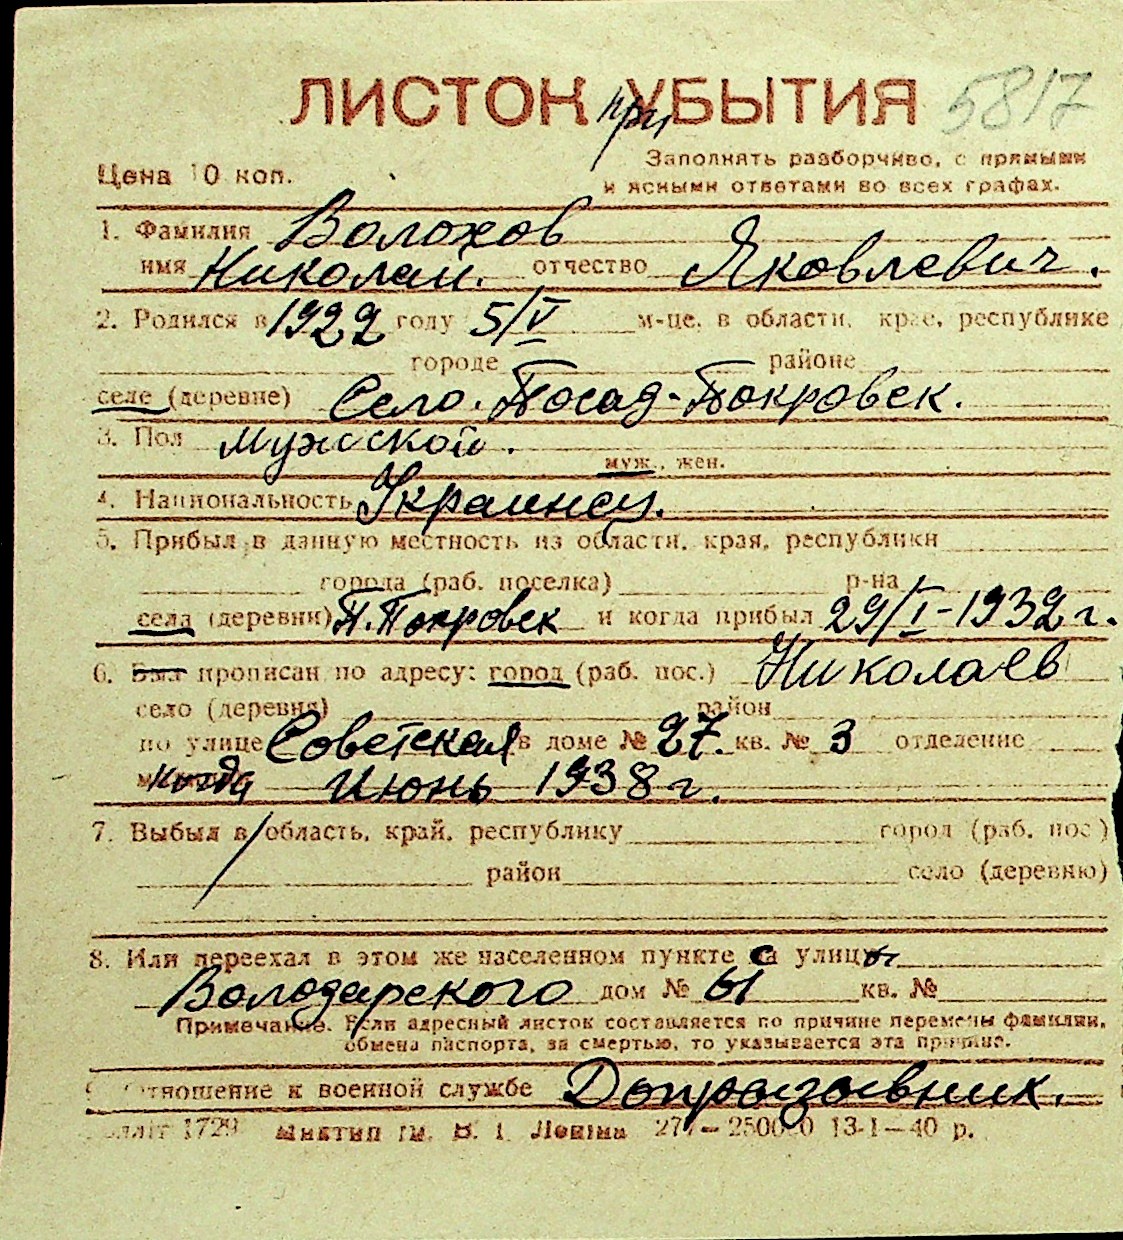 ЛИСТОК при УБЫТИЯ 5817
Цена 10 коп.
Заполнять разборчиво, с прямыми
и ясными ответами во всех графах.
1. Фамилия Волохов
имя Николай. отчество Яковлевич.
2. Родился в 1922 году 5/V м-це, в области, крае, республике
городе районе
селе (деревне) Село. Посад-Покровск.
3. Пол мужской.
муж., жен.
4. Национальность Украинец.
5. Прибыл в данную местность из области, края, республики
города (раб. поселка) р-на
села (деревни) П. Покровск и когда прибыл 29/I-1932 г.
6. Был прописан по адресу: город (раб. пос.) Николаев
село (деревня) район
по улице Советская в доме № 27. кв. № 3 отделение
когда Июнь 1938 г.
7. Выбыл в область, край, республику город (раб. пос)
район село (деревню)
8. Или переехал в этом же населенном пункте са улицы
Володарского дом № 61 кв. №
Примечание. Если адресный листок составляется по причине перемены фамилии,
обмена паспорта, за смертью, то указывается эта причина.
Отношение к военной службе Допризывник.
1729 277—250000 13-1—40 р.